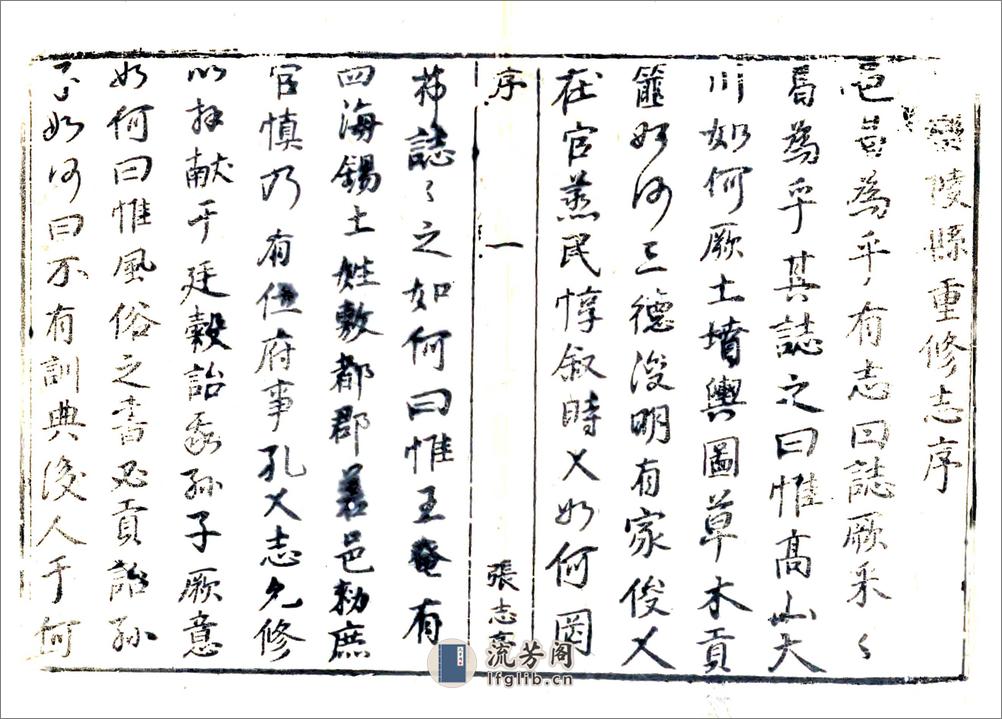 陵縣重修志序
邑曷為乎有志曰誌厥采〻
曷為乎其誌之曰惟高山大
川如何厥土墳輿圖草木貢
篚如何三德浚明有家俊乂
在官烝民惇叙時乂如何罔
序 一 張志
弗誌〻之如何曰惟王奄有
四海錫土姓敷都郡邑勑庶
官慎乃有位府事孔乂志允修
以拜献于廷穀詒孫子厥意
如何曰惟風俗之書必貢詒孫
子如何曰不有訓典後人于何
流芳阁
lfglib.cn